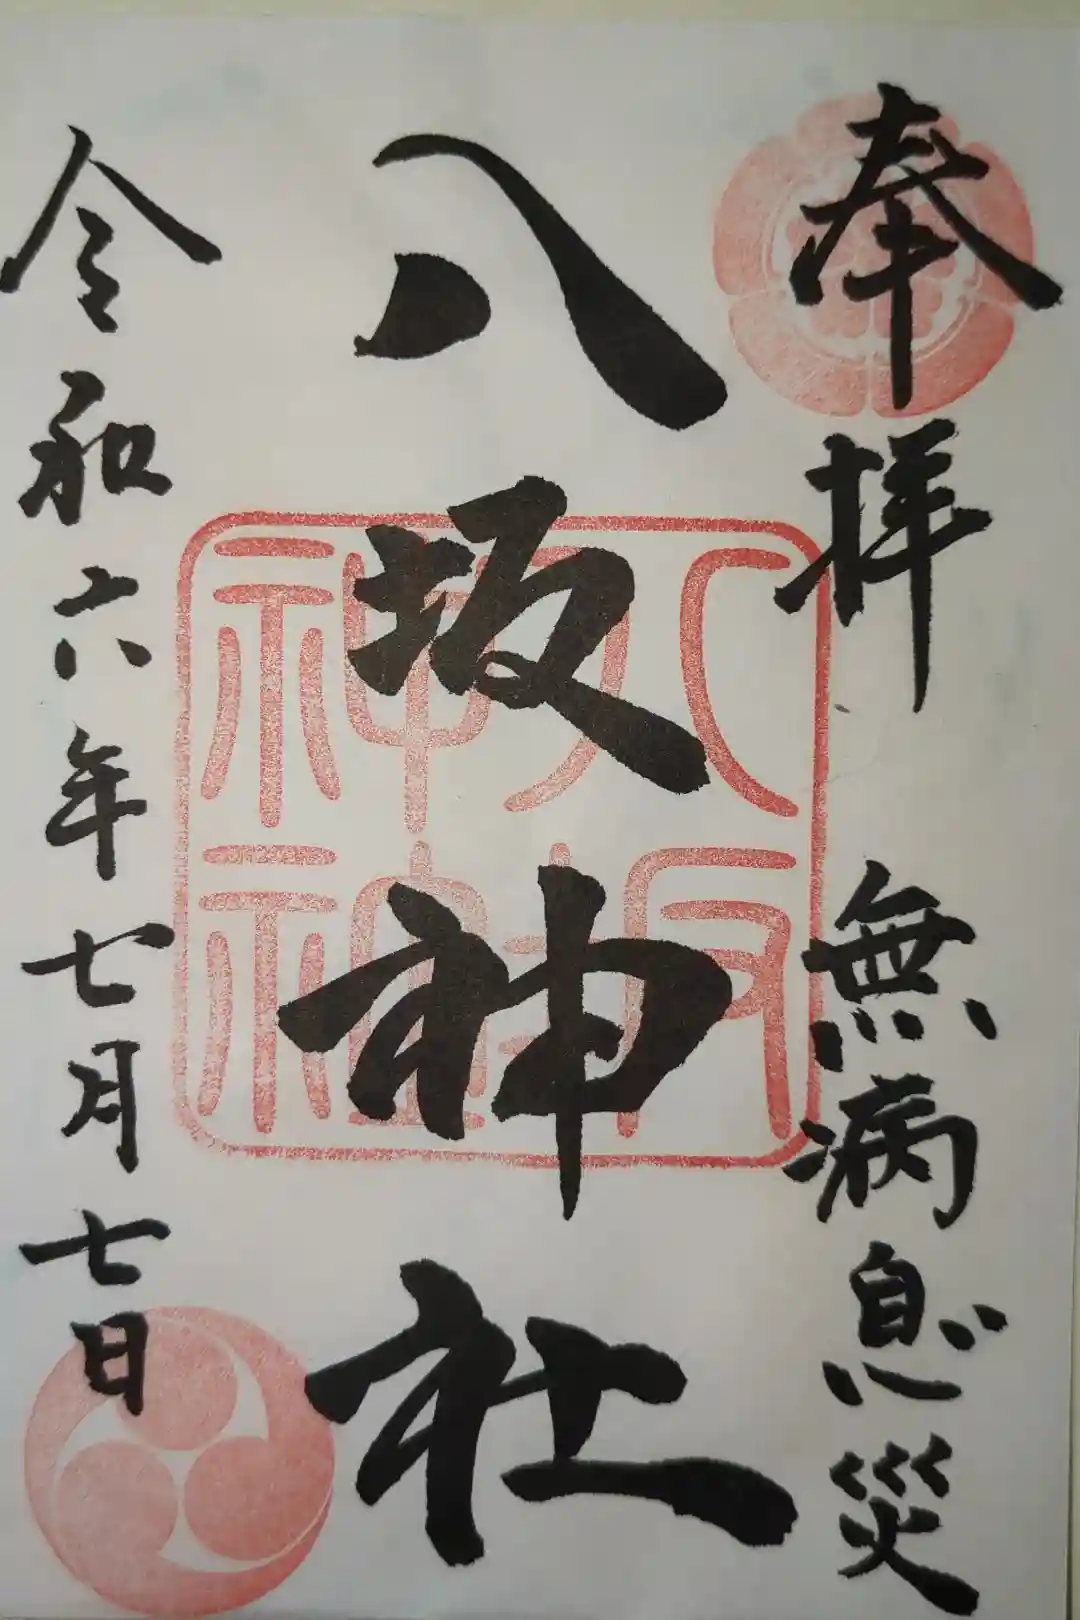 奉拝 無病息災
八坂神社
八坂
神社
令和六年七月七日